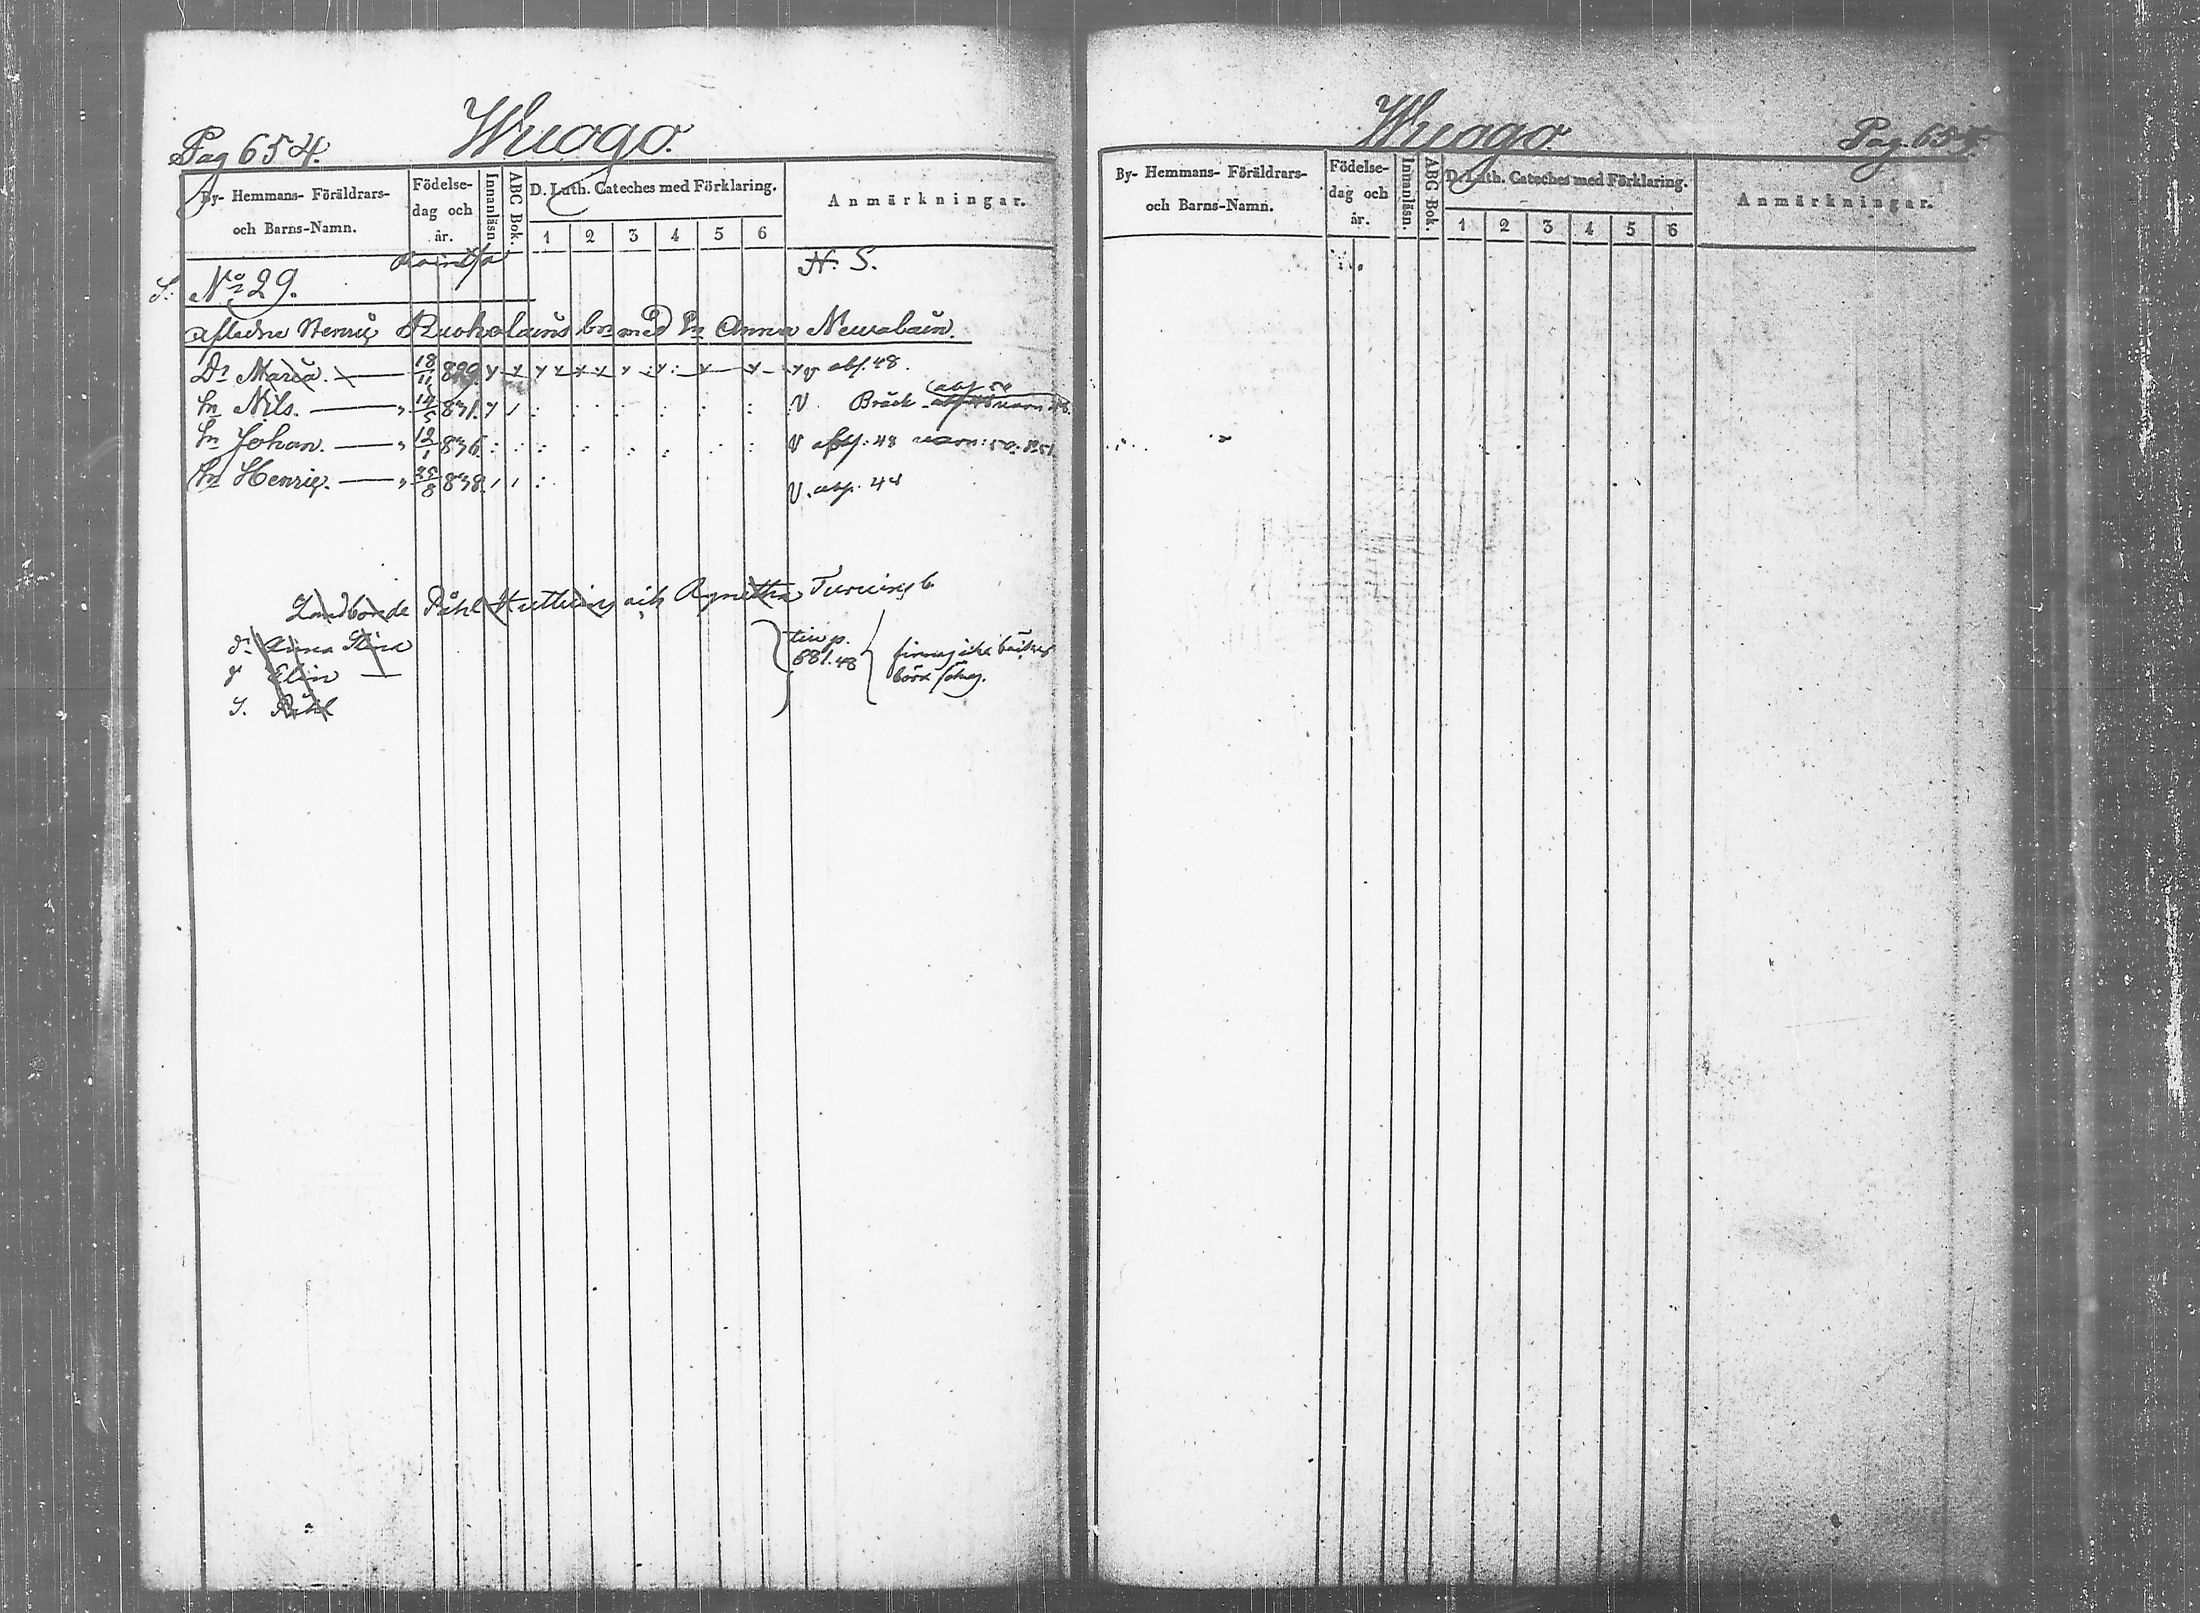 Pag 654. Wuogo.
By- Hemmans- Föräldrars- och Barns-Namn.
Födelse-dag och år.
Innanläsn.
ABC Bok.
D. Luth. Cateches med Förklaring.
1 2 3 4 5 6
Anmärkningar.
N. S.
No 29.
Afledne Henric Ruokolains bn med hu Anna Neuvalain.
Dr Maria. 18/11 829. v abs. 48.
Sn Nils. 14/5 831. v Bräck
Sn Johan. 12/1 836. v abs. 48
Sn Henric. 25/8 838. v. abs. 48
Landbonde Påhl och Agnetha
dr Anna Stina
d Elin
S. Påhl
681. 48
böra
Wuogo Pag. 654.
By- Hemmans- Föräldrars- och Barns-Namn.
Födelse-dag och år.
Innanläsn.
ABC Bok.
D. Luth. Cateches med Förklaring.
1 2 3 4 5 6
Anmärkningar.